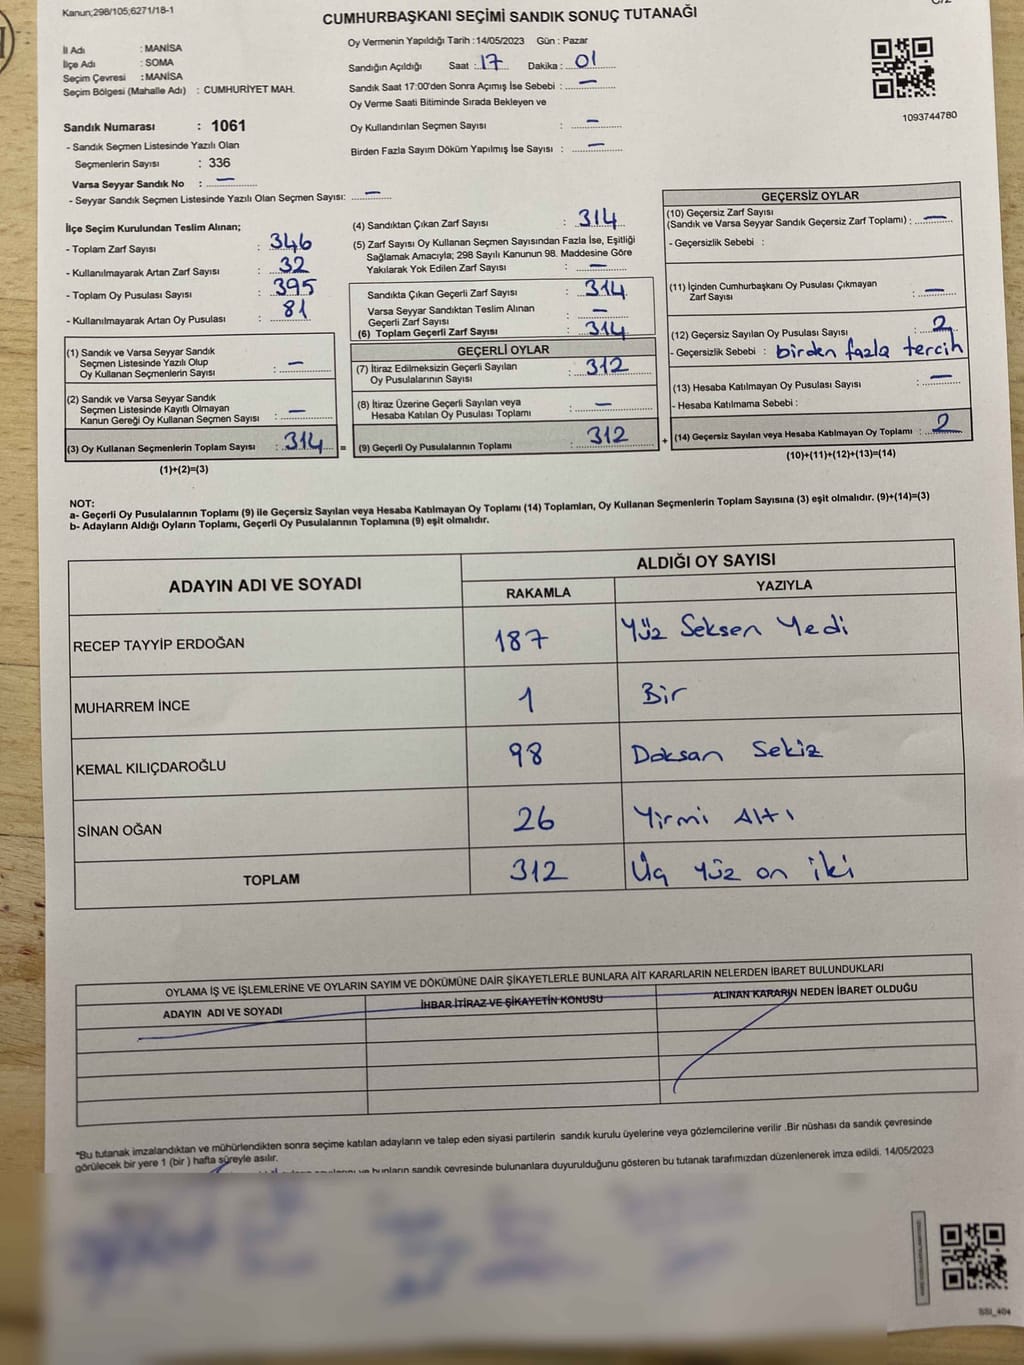 Kanun;298/105;6271/18-1
CUMHURBAŞKANI SEÇİMİ SANDIK SONUÇ TUTANAĞI
İl Adı : MANİSA
İlçe Adı : SOMA
Seçim Çevresi : MANİSA
Seçim Bölgesi (Mahalle Adı) : CUMHURİYET MAH.
Sandık Numarası : 1061
- Sandık Seçmen Listesinde Yazılı Olan
Seçmenlerin Sayısı : 336
Varsa Seyyar Sandık No : —
- Seyyar Sandık Seçmen Listesinde Yazılı Olan Seçmen Sayısı: —
Oy Vermenin Yapıldığı Tarih :14/05/2023 Gün : Pazar
Sandığın Açıldığı Saat : 17 Dakika : 01
Sandık Saat 17:00'den Sonra Açımış İse Sebebi : —
Oy Verme Saati Bitiminde Sırada Bekleyen ve
Oy Kullandırılan Seçmen Sayısı : —
Birden Fazla Sayım Döküm Yapılmış İse Sayısı : —
1093744780
İlçe Seçim Kurulundan Teslim Alınan;
- Toplam Zarf Sayısı : 346
- Kullanılmayarak Artan Zarf Sayısı : 32
- Toplam Oy Pusulası Sayısı : 395
- Kullanılmayarak Artan Oy Pusulası : 81
(1) Sandık ve Varsa Seyyar Sandık
Seçmen Listesinde Yazılı Olup
Oy Kullanan Seçmenlerin Sayısı : —
(2) Sandık ve Varsa Seyyar Sandık
Seçmen Listesinde Kayıtlı Olmayan
Kanun Gereği Oy Kullanan Seçmen Sayısı : —
(3) Oy Kullanan Seçmenlerin Toplam Sayısı : 314 =
(1)+(2)=(3)
(4) Sandıktan Çıkan Zarf Sayısı : 314
(5) Zarf Sayısı Oy Kullanan Seçmen Sayısından Fazla İse, Eşitliği
Sağlamak Amacıyla; 298 Sayılı Kanunun 98. Maddesine Göre
Yakılarak Yok Edilen Zarf Sayısı : —
Sandıkta Çıkan Geçerli Zarf Sayısı : 314
Varsa Seyyar Sandıktan Teslim Alınan
Geçerli Zarf Sayısı : —
(6) Toplam Geçerli Zarf Sayısı : 314
GEÇERLİ OYLAR
(7) İtiraz Edilmeksizin Geçerli Sayılan
Oy Pusulalarının Sayısı : 312
(8) İtiraz Üzerine Geçerli Sayılan veya
Hesaba Katılan Oy Pusulası Toplamı : —
(9) Geçerli Oy Pusulalarının Toplamı : 312 +
GEÇERSİZ OYLAR
(10) Geçersiz Zarf Sayısı
(Sandık ve Varsa Seyyar Sandık Geçersiz Zarf Toplamı) : —
- Geçersizlik Sebebi :
(11) İçinden Cumhurbaşkanı Oy Pusulası Çıkmayan
Zarf Sayısı : —
(12) Geçersiz Sayılan Oy Pusulası Sayısı : 2
- Geçersizlik Sebebi : birden fazla tercih
(13) Hesaba Katılmayan Oy Pusulası Sayısı : —
- Hesaba Katılmama Sebebi :
(14) Geçersiz Sayılan veya Hesaba Katılmayan Oy Toplamı : 2
(10)+(11)+(12)+(13)=(14)
NOT:
a- Geçerli Oy Pusulalarının Toplamı (9) ile Geçersiz Sayılan veya Hesaba Katılmayan Oy Toplamı (14) Toplamları, Oy Kullanan Seçmenlerin Toplam Sayısına (3) eşit olmalıdır. (9)+(14)=(3)
b- Adayların Aldığı Oyların Toplamı, Geçerli Oy Pusulalarının Toplamına (9) eşit olmalıdır.
ADAYIN ADI VE SOYADI ALDIĞI OY SAYISI
RAKAMLA YAZIYLA
RECEP TAYYİP ERDOĞAN 187 Yüz Seksen Yedi
MUHARREM İNCE 1 Bir
KEMAL KILIÇDAROĞLU 98 Doksan Sekiz
SİNAN OĞAN 26 Yirmi Altı
TOPLAM 312 Üç Yüz on iki
OYLAMA İŞ VE İŞLEMLERİNE VE OYLARIN SAYIM VE DÖKÜMÜNE DAİR ŞİKAYETLERLE BUNLARA AİT KARARLARIN NELERDEN İBARET BULUNDUKLARI
ADAYIN ADI VE SOYADI İHBAR İTİRAZ VE ŞİKAYETİN KONUSU ALINAN KARARIN NEDEN İBARET OLDUĞU
*Bu tutanak imzalandıktan ve mühürlendikten sonra seçime katılan adayların ve talep eden siyasi partilerin sandık kurulu üyelerine veya gözlemcilerine verilir .Bir nüshası da sandık çevresinde
görülecek bir yere 1 (bir ) hafta süreyle asılır.
ve bunların sandık çevresinde bulunanlara duyurulduğunu gösteren bu tutanak tarafımızdan düzenlenerek imza edildi. 14/05/2023
SSI_404